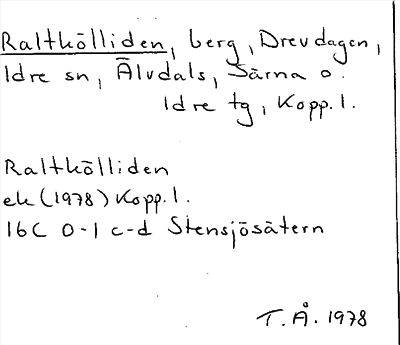 Raltkölliden, berg, Drevdagen,
Idre sn, Älvdals, Särna o.
Idre tg, Kopp. l.
Raltkölliden
ek (1978) Kopp. l.
16C 0-1 c-d Stensjösätern
T. Å. 1978